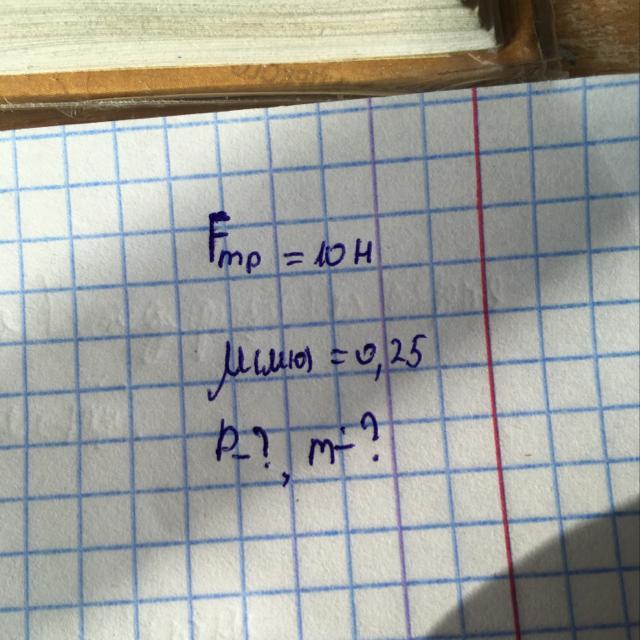 Fтр = 10 Н
μ = 0,25
P - ?, m - ?